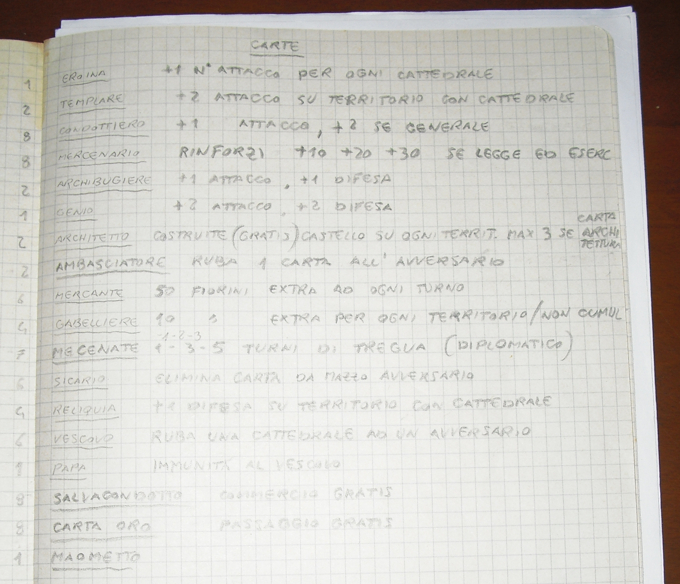 CARTE
1 EROINA +1 N° ATTACCO PER OGNI CATTEDRALE
2 TEMPLARE +2 ATTACCO SU TERRITORIO CON CATTEDRALE
8 CONDOTTIERO +1 ATTACCO, +2 SE GENERALE
8 MERCENARIO RINFORZI +10 +20 +30 SE LEGGE ED ESERC
2 ARCHIBUGIERE +1 ATTACCO, +1 DIFESA
1 GENIO +2 ATTACCO, +2 DIFESA
2 ARCHITETTO COSTRUITE (GRATIS) CASTELLO SU OGNI TERRIT. MAX 3 SE CARTA ARCHI TETTURA
2 AMBASCIATORE RUBA 1 CARTA ALL'AVVERSARIO
6 MERCANTE 50 FIORINI EXTRA AD OGNI TURNO
4 GABELLIERE 10 " EXTRA PER OGNI TERRITORIO/NON CUMUL
1-2-3
7 MECENATE 1-3-5 TURNI DI TREGUA (DIPLOMATICO)
6 SICARIO ELIMINA CARTA DA MAZZO AVVERSARIO
4 RELIQUIA +1 DIFESA SU TERRITORIO CON CATTEDRALE
6 VESCOVO RUBA UNA CATTEDRALE AD UN AVVERSARIO
1 PAPA IMMUNITÀ AL VESCOVO
8 SALVACONDOTTO COMMERCIO GRATIS
8 CARTA ORO PASSAGGIO GRATIS
1 MAOMETTO